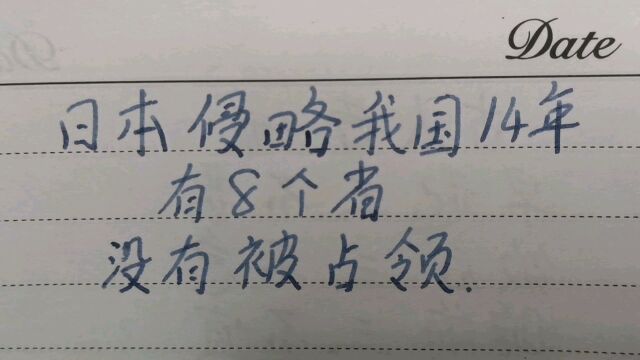 Date
日本侵略我国14年
有8个省
没有被占领.